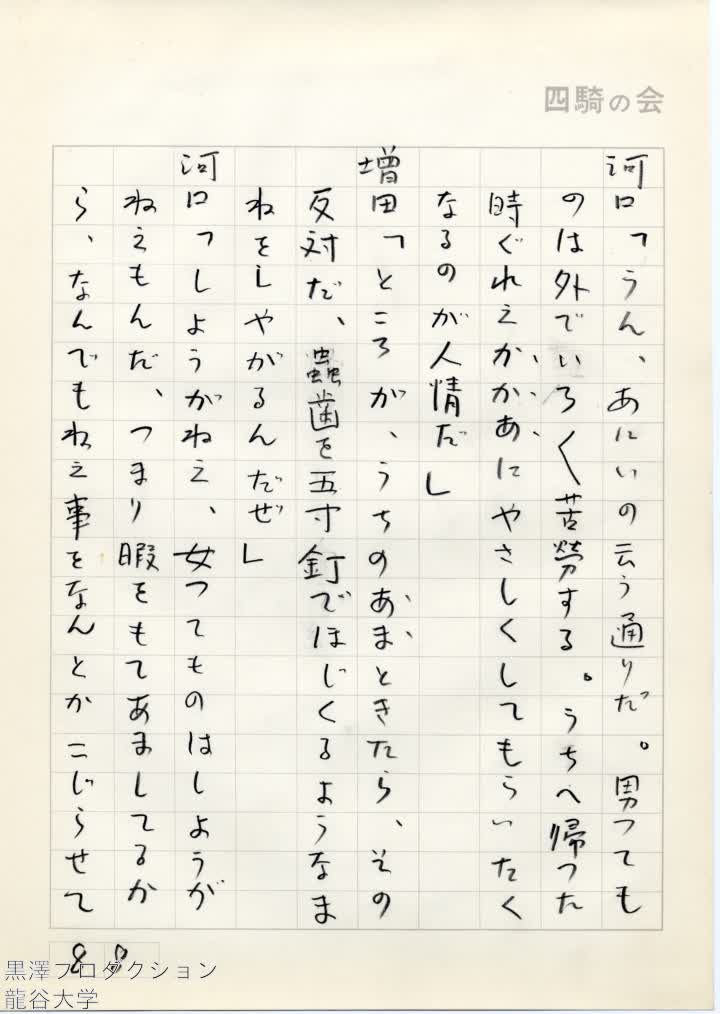 四騎の会
河口「うん、あにいの云う通りだ。男つても
のは外でいろ〱苦勞する。うちへ帰つた
時ぐれえかかあにやさしくしてもらいたく
なるのが人情だ」
増田「ところが、うちのあまときたら、その
反対だ、蟲歯を五寸釘でほじくるようなま
ねをしやがるんだぜ」
河口「しようがねえ、女つてものはしようが
ねえもんだ、つまり暇をもてあましてるか
ら、なんでもねえ事をなんとかこじらせて
88
黒澤プロダクション
龍谷大学